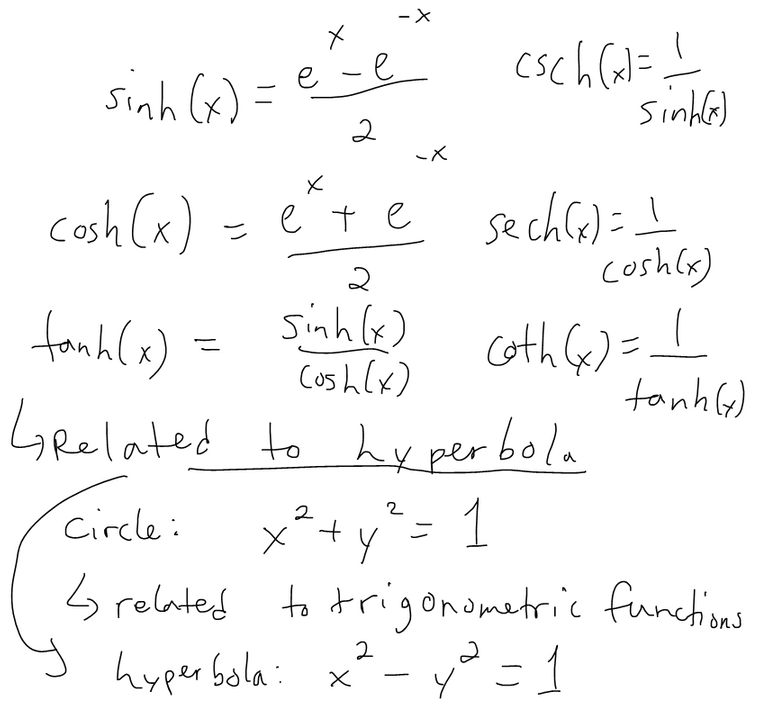 sinh(x) = (e^x - e^-x)/2    csch(x) = 1/sinh(x)
cosh(x) = (e^x + e^-x)/2    sech(x) = 1/cosh(x)
tanh(x) = sinh(x)/cosh(x)    coth(x) = 1/tanh(x)
↳ Related to hyperbola
circle: x² + y² = 1
↳ related to trigonometric functions
hyperbola: x² - y² = 1